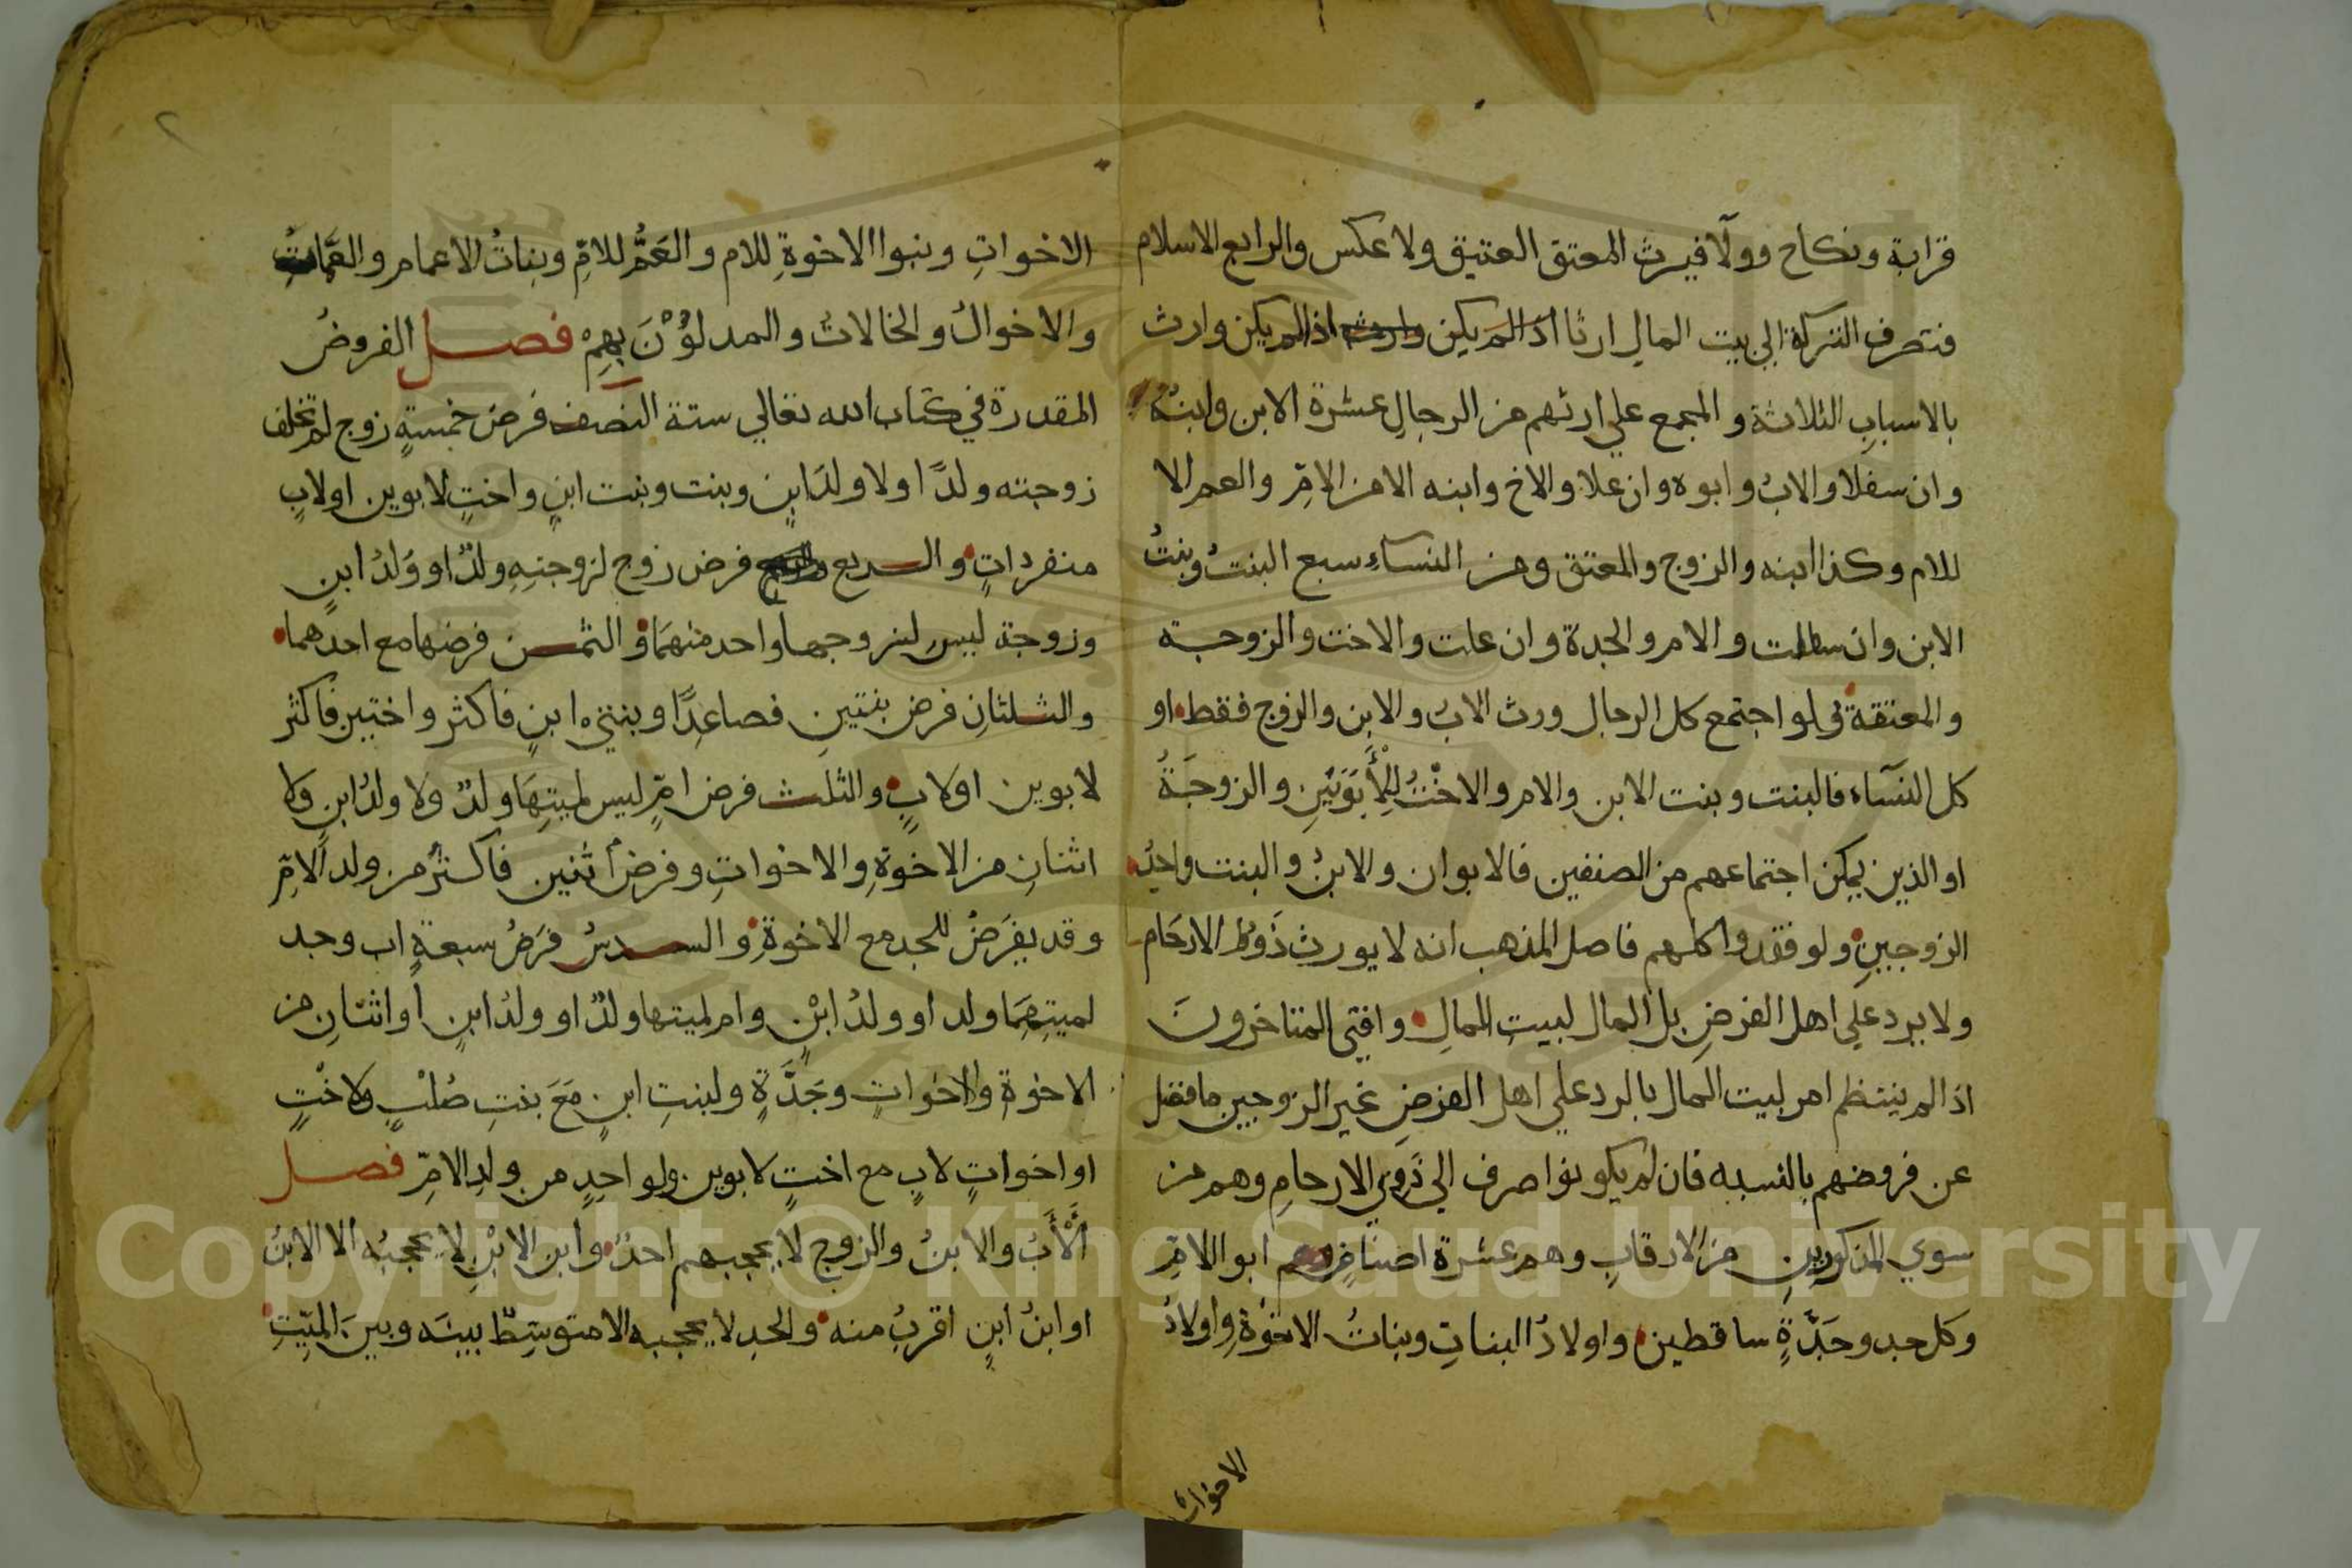 قرابة ونكاح وولآ فيرث المعتق العتيق ولا عكس والرابع الاسلام
فتصرف التركة الي بيت المال ارثا اذا لم يكن وارث اذا لم يكن وارث
بالاسباب الثلاثة والمجمع علي ارثهم من الرجال عشرة الابن وابنه
وان سفلا والابُ وابوه وان علا والاخ وابنه الا من الامِّ والعم الا
للام وكذا ابنه والزوج والمعتق ومن النساء سبع البنتُ وبنتُ
الابن وان سفلت والام والجدة وان علت والاخت والزوجة
والمعتقة فلو اجتمع كل الرجال ورث الابُ والابن والزوج فقط او
كل النسآء فالبنت وبنت الابن والام والاخْتُ لِلْأَبَوَيْنِ والزوجَةُ
او الذين يمكن اجتماعهم من الصنفين فالابوان والابنُ والبنت واحدُ
الزوجينِ ولو فقدوا كلهم فاصل المذهب انه لا يورث ذَووا الارحَام
ولا يرد علي اهل الفرضِ بل المال لبيتِ المالِ وافتى المتاخرونَ
اذا لم ينتظم امر لبيت المال بالرد علي اهل الفرضِ غير الزوجين ما فضل
عن فروضهم بالنسبه فان لم يكونوا صرف الي ذَوِي الارحامِ وهم من
سوي المذكورين من الارقابِ وهم عشرة اصنافٍ ابو الامِّ
وكل جد وجَدَّةٍ ساقطين واولادُ البناتِ وبناتُ الاخْوَةِ واولادُ
الاخوات
٢
الاخواتِ وبنوا الاخوةِ للام والعَمُّ للامِّ وبناتُ الاعمام والعَمَّاتُ
والاخوالُ والخالاتُ والمدلوُنَ بهِمْ فصل الفروضُ
المقدرة في كتاب الله تعالي ستة النصف فرض خمسةٍ زوج لم تخلف
زوجته ولدًا ولا ولدَ ابنٍ وبنت وبنت ابنٍ واختٍ لابوين او لابٍ
منفرداتٍ والربع فرض زوج لزوجتِهِ ولدٌ او وَلدُ ابنٍ
وزوجة ليس لزوجها واحد منهمَا والثمن فرضها مع احدهما
والثلثانِ فرض بنتينِ فصاعِدًا وبنتي ابنٍ فاكثر واختين فاكثر
لابوين او لابٍ والثلث فرض امٍّ ليس لميتِهَا ولدٌ ولا ولدُ ابنٍ ولا
اثنانِ من الاخوةِ والاخواتِ وفرض اثنين فاكثرُ من ولد الامِّ
وقد يفرَضُ للجد مع الاخوةِ والسدسُ فرَضُ سبعةٍ اب وجد
لميتِهِمَا ولد او ولدُ ابْنٍ وام لميتها ولدٌ او ولدُ ابنٍ او اثنانِ من
الاخوةِ والاخواتِ وجَدَّةٍ ولبنتِ ابنٍ مَعَ بنتِ صُلْبٍ ولاخْتٍ
او اخواتٍ لابٍ مع اختٍ لابوين ولواحِدٍ من ولدِ الامِّ فصل
أَلْأَبُ والابنُ والزوج لا يحجبهم احدٌ وابن الابْنِ لا يحجبُه الا الابنُ
او ابنُ ابنٍ اقربُ منه والجد لا يحجبه الا متوسِّطٌ بينَه وبينَ الميِّتِ
Copyright © King Saud University